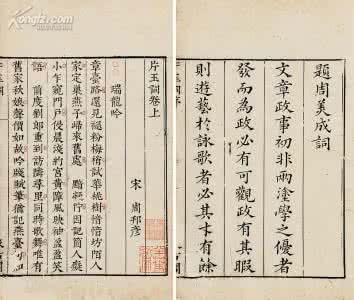 題周美成詞
文章政事初非兩塗學之優者
發而為政必有可觀政有其暇
則遊藝於詠歌者必其才有餘
片玉詞卷上
宋 周邦彥
瑞龍吟
章臺路還見褪粉梅梢試華桃樹愔愔坊陌人
家定巢燕子歸來舊處 黯凝佇因記箇人癡
小乍窺門戶侵晨淺約宮黃障風映袖盈盈笑
語 前度劉郎重到訪隣尋里同時歌舞唯有
舊家秋娘聲價如故吟牋賦筆猶記燕臺句
Kongfz.com